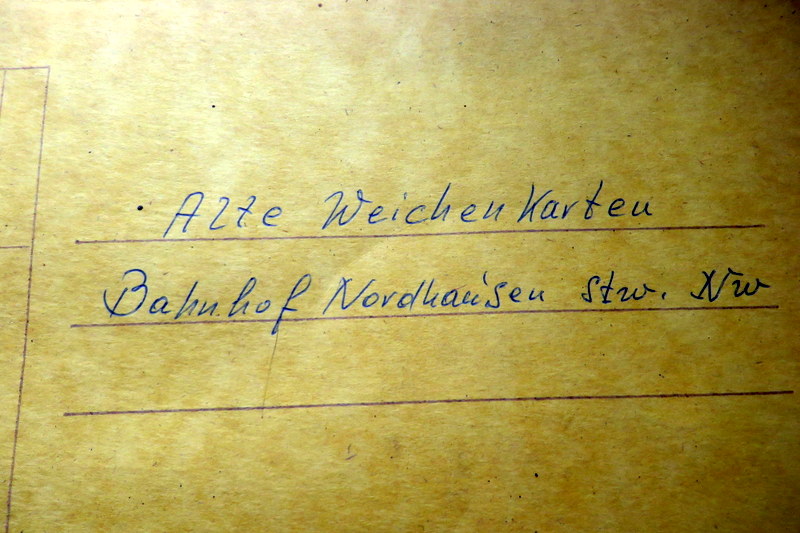 Alte Weichenkarten
Bahnhof Nordhausen Stw. Nw